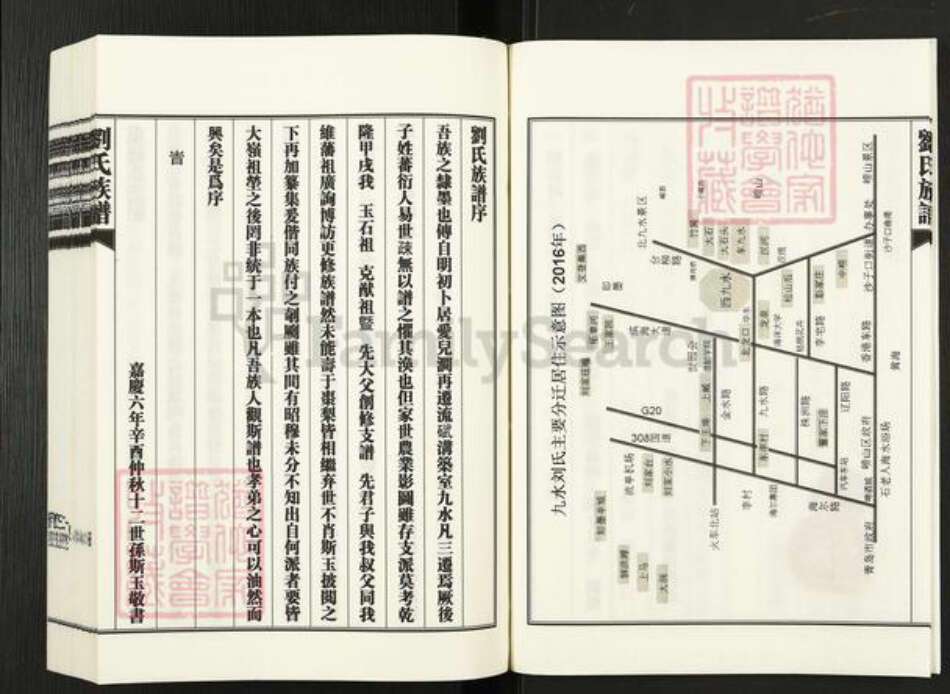 劉氏族譜
劉氏族譜序
吾族之隸墨也傳自明初卜居愛兒澗再遷流𡶴溝築室九水凡三遷焉厥後
子姓蕃衍人易世疎無以譜之懼其渙也但家世農業影圖雖存支派莫考乾
隆甲戌我 玉石祖 克猷祖暨 先大父創修支譜 先君子與我叔父同我
維藩祖廣詢博訪更修族譜然未能壽于棗梨皆相繼棄世不肖斯玉披閱之
下再加纂集爰偕同族付之剞劂雖其間有昭穆未分不知出自何派者要皆
大嶺祖塋之後罔非統于一本也凡吾族人觀斯譜也孝弟之心可以油然而
興矣是爲序
嘉慶六年辛酉仲秋十二世孫斯玉敬書
劉氏族譜
九水刘氏主要分迁居住示意图（2016年）
北九水景区
崂山
崂山景区
沙子口街道办事处
台柳路
竹窝
大石
大石头
东九水
汉河
西九水
松山后
彭家庄
中韩
即墨
滨海大道
王家园
北龙口
龙泉
海洋大学
李宅路
香港东路
黄海
上臧
金水路
九水路
株洲路
董家下庄
辽阳路
G20
308国道
流亭机场
刘家台
汽车车站
崂山区政府
石老人海水浴场
李村
海尔路
火车北站
上马
青岛市政府
FamilySearch